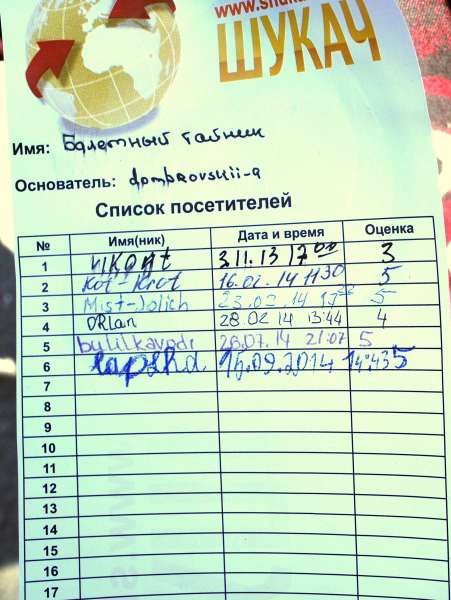 www.shuka
ШУКАЧ
Имя: Балетный тайник
Основатель: dombrovskii-a
Список посетителей
№ Имя(ник) Дата и время Оценка
1 nikont 3.11.13 17⁰⁰ 3
2 Kot-Krot 16.02.14 11 30 5
3 Mist-Jolich 23.02.14 5
4 ORlan 28 02 14 13:44 4
5 bulilkavodi 26.07.14 21:07 5
6 lapsha 15.09.2014 14:43 5
7
8
9
10
11
12
13
14
15
16
17